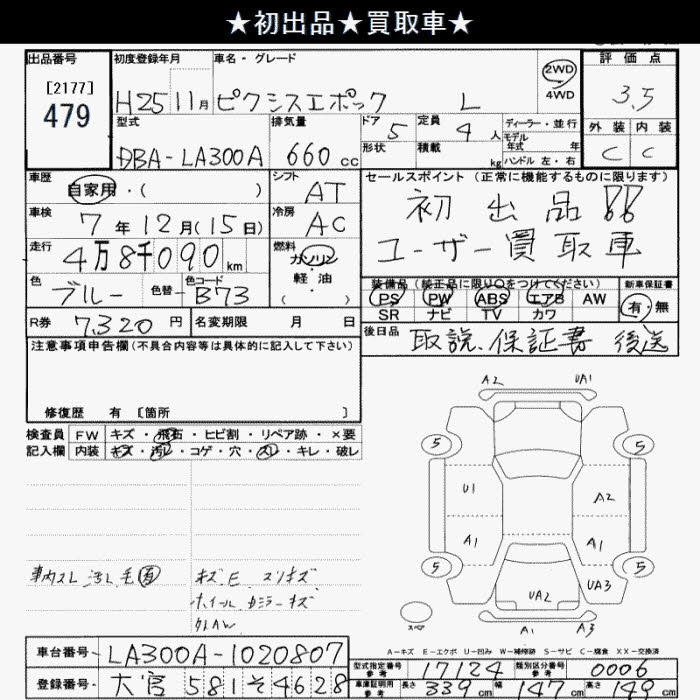 ★初出品★買取車★
出品番号
[2177]
479
初度登録年月
H25 11月
車名・グレード
ピクシスエポック L
2WD
4WD
評価点
3.5
外装 内装
C C
型式
DBA-LA300A
排気量
660 cc
ドア 5
形状
定員 4 人
積載 kg
ディーラー・並行
モデル年式 年
ハンドル 左・右
車歴
自家用・( )
車検
7年12月(15日)
走行
4万8千090km
色
ブルー
色替
色コード
B73
R券 7,320円
名変期限 月 日
シフト
AT
冷房
AC
燃料
ガソリン
軽油
( )
セールスポイント(正常に機能するものに限ります)
初出品!!
ユーザー買取車
装備品(純正品に限り○をつけてください)
PS PW ABS エアB AW
SR ナビ TV カワ
新車保証書
有・無
後日品
取説、保証書 後送
注意事項申告欄(不具合内容等は具体的に記入して下さい)
修復歴 有 [箇所 ]
検査員
記入欄
FW キズ・飛石・ヒビ割・リペア跡・×要
内装 キズ・汚レ・コゲ・穴・スレ・キレ・破レ
車内スレ 汚レ 毛
キズE スリキズ
ホイールカバーキズ
A2
UA1
5
5
U1
A2
A1
A1
5
5
UA2
UA3
スペア
A1
A3
A-キズ E-エクボ U-凹み W-補修跡 S-サビ C-腐食 XX-交換済
車台番号 LA300A-1020807
登録番号 大宮 581 そ 4628
型式指定番号
参考
17124
類別区分番号
参考
0006
車庫証明用
参考
長さ 339 cm 幅 147 cm 高さ 149 cm